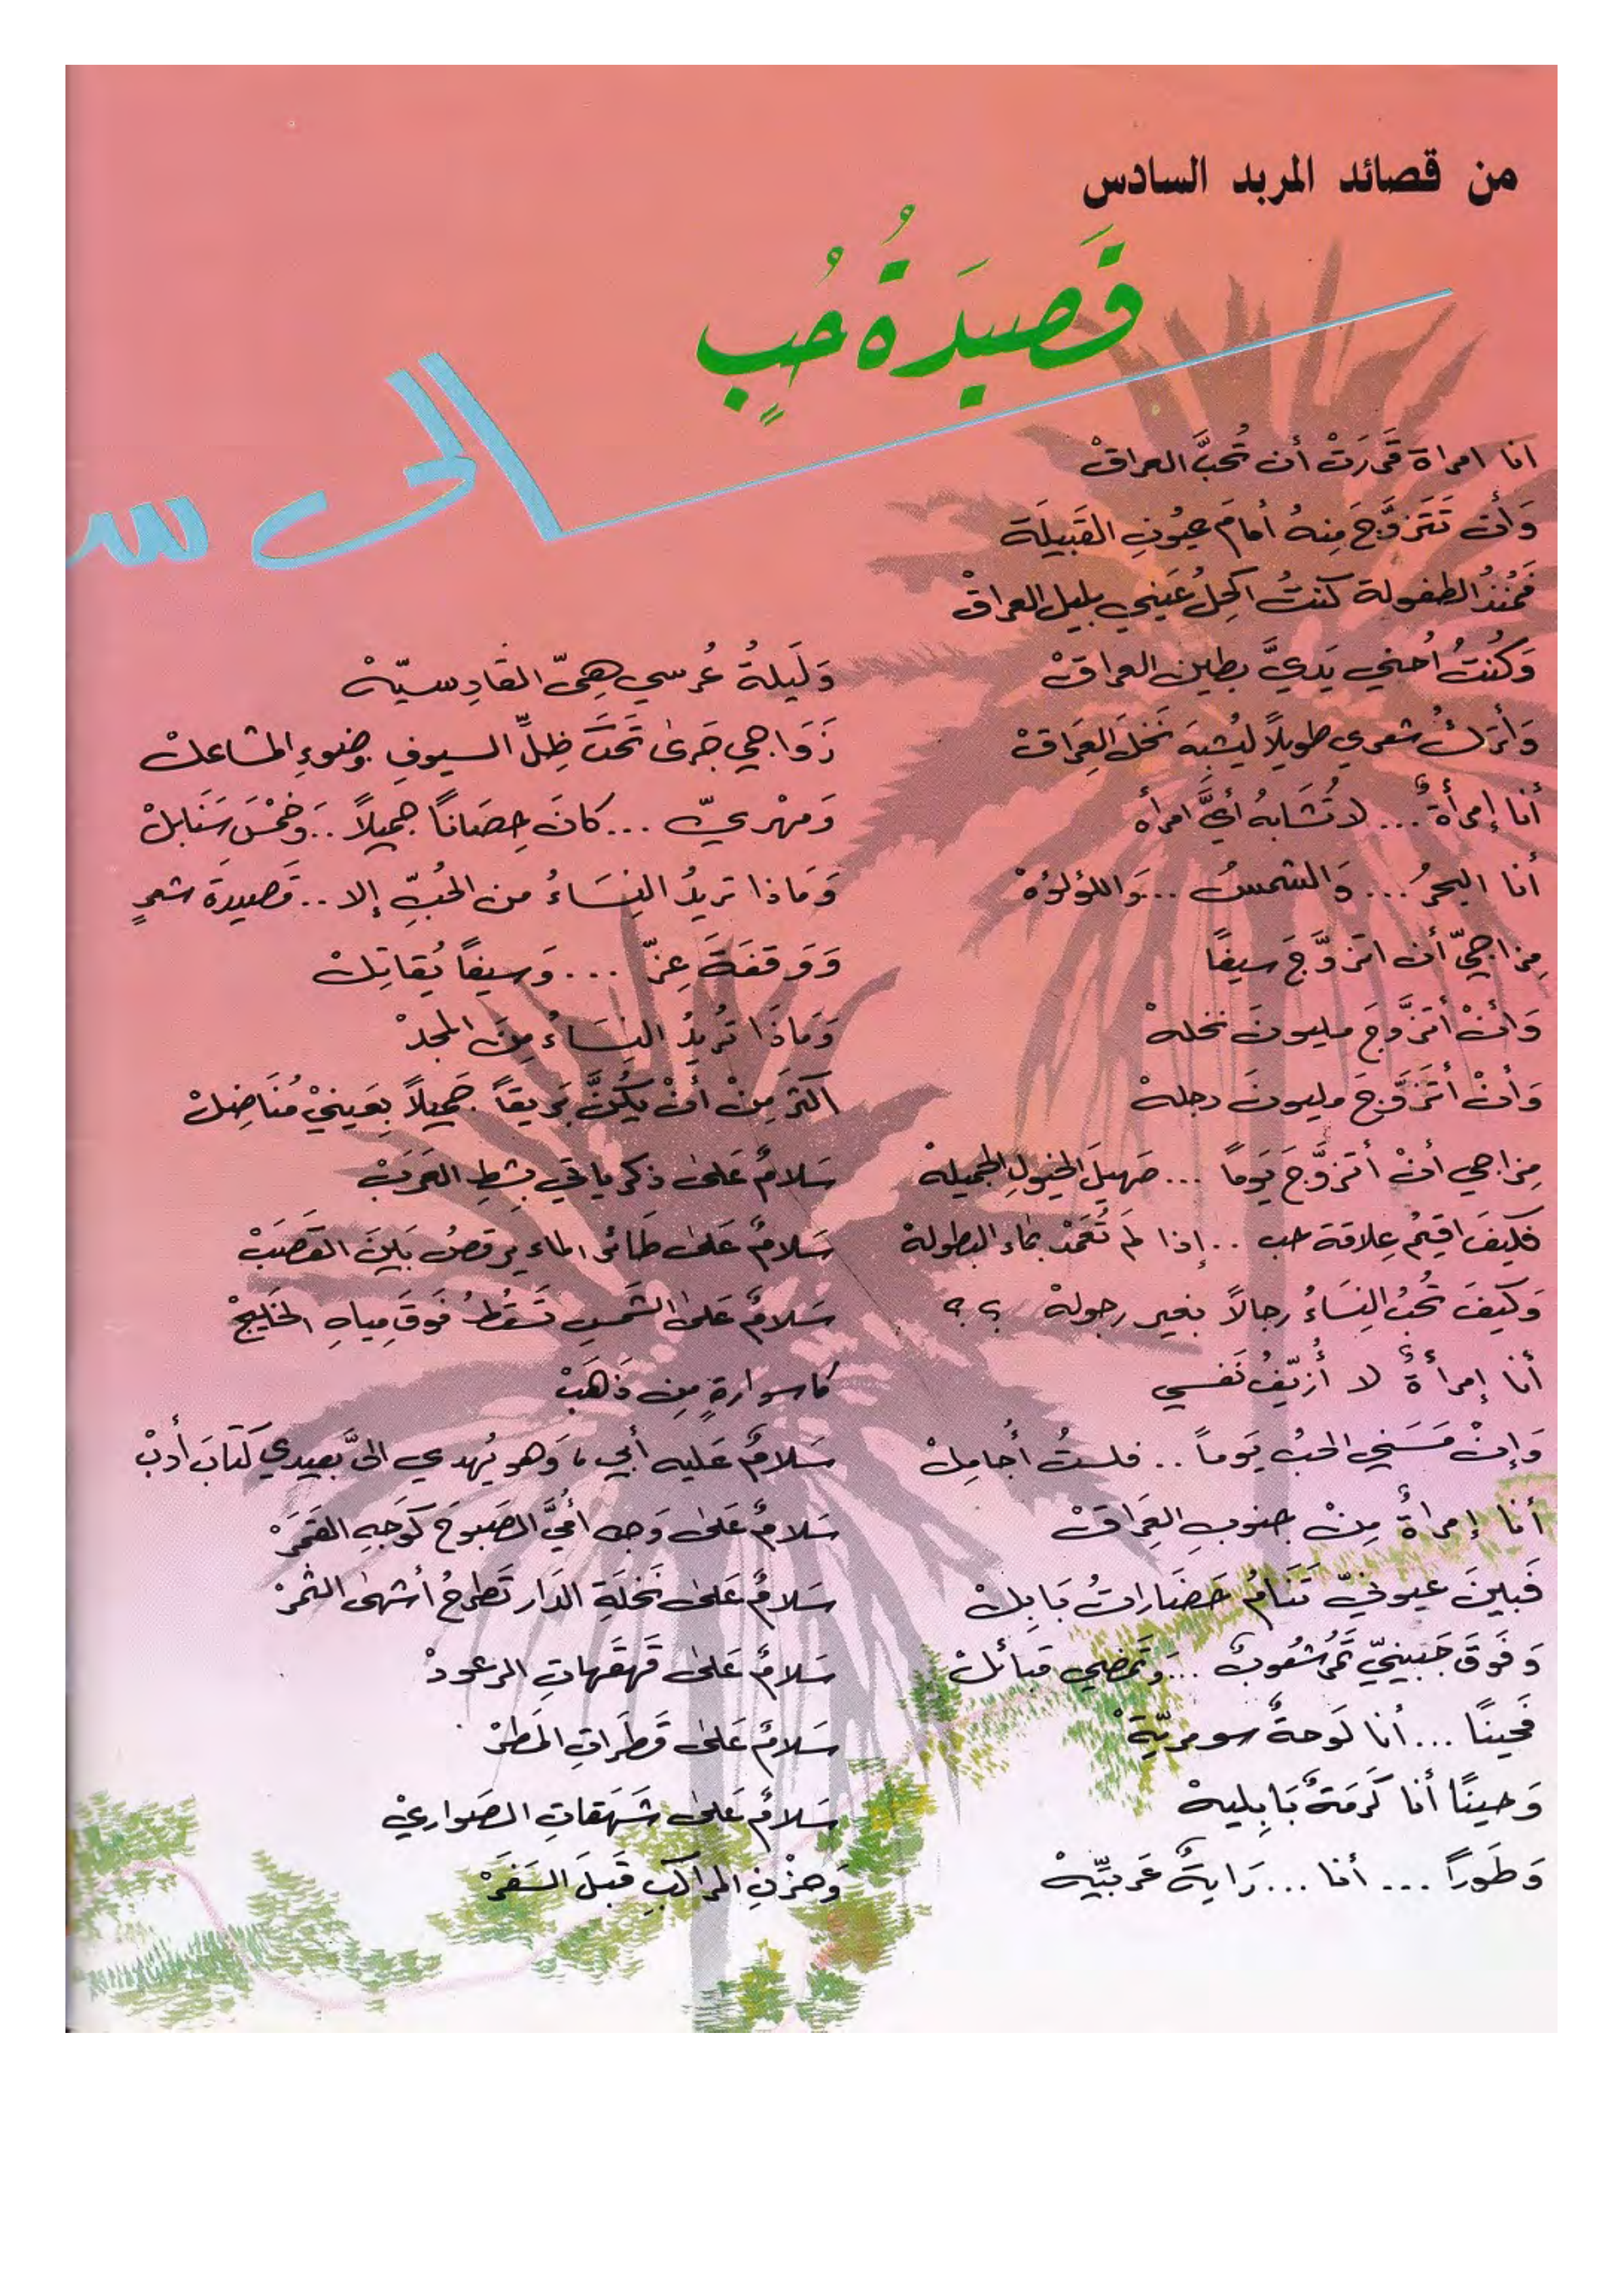 من قصائد المربد السادس
قَصيدَةُ حُبٍ
الى س
انا امراة قَررَتْ أن تُحبَّ العراقْ
وَأن تَتَزوَّجَ مِنهُ أمامَ عيُونِ القَبيلَة
فَمُنذُ الطفولة كنتُ اكحِلُ عَيني بليل العراقْ
وَكنُتُ أحني يَديَّ بطين العراقْ
وَأترَكُ شعري طويلاً ليُشبِهَ نَخلَ العِرَاقْ
أنا إمرأةٌ ... لا تُشَابهُ أيَّ امرأه
أنا البحرُ ... وَالشمسُ ... وَاللؤلؤهْ
مِزاجيّ أن اتزوَّجَ سيفًا
وَأنْ أتزَّوجَ مليونَ نخلهْ
وَأنْ أتَزَوَّجَ مليونَ دجلهْ
مِزاجي أنْ أتزوَّجَ يَوماً ... صَهيلَ الخيولِ الجميلهْ
فكيفَ اقيمُ عِلاقة حب .. إذا لم تُعَمَدْ بماء البطولهْ
وَكيفَ تحُبُ النِسَاءُ رجالاً بغير رجولهْ ؟؟
أنا إمرأةٌ لا أُزيّفُ نَفسي
وَإنْ مَسَني الحبُ يَوماً .. فلستُ أجُامِلْ
أنا إمرأةٌ مِنْ جنوبِ العِرَاقْ
فَبينَ عيونيّ تَنَامُ حَضَاراتُ بَابِلْ
وَفَوقَ جَبينيّ تَمرُ شعُوبٌ ... وَتمضي قبائلْ
فَحينًا ... أنا لَوحةٌ سومريّةْ
وَحينًا أنا كَرمَةٌ بَابِليهْ
وَطَوراً ... أنا ... رَايةٌ عَربيّيهْ
وَلَيلةُ عُرسي هِيّ القَادِسيّهْ
زَوَاجي جَرىٰ تَحتَ ظِلِّ السيوفِ وضوءِ المشاعلْ
وَمهْريّ ... كانَ حِصَانًا جميلاً .. وَخمْسَ سَنَابلْ
وَمَاذا تريدُ النِسَاءُ من الحُبِّ إلا .. قَصيدةَ شعرٍ
وَوَقفَةَ عِزّ ... وَسيفاً يُقاتِلْ
وَمَاذَا تُريدُ النِسَاءُ مِنَ المجدْ
اكثرَ مِنْ أنْ يَكُنَّ بَريقاً جَميلاً بِعَينيْ مُنَاضِلْ
سَلامٌ عَلىٰ ذكرياتي بشطِ العَرَبْ
سَلامٌ عَلىٰ طَائرِ الماء يرقصُ بَينَ القَصَبْ
سَلامٌ عَلىٰ الشَمسِ تَسقُطُ فَوقَ مِياهِ الخَليجْ
كاسوارةٍ مِن ذَهَبْ
سَلامٌ عَليه أبي، وَهو يُهدي الىَّ بعيدي كتَابَ أدبْ
سَلامٌ عَلىٰ وَجه أمُيَّ الصَبوحَ كوَجهِ القَمَرْ
سَلامٌ عَلىٰ نَخلَةِ الدَار تَطرحُ أشهىٰ الثمرْ
سَلامٌ عَلىٰ قَهقَهاتِ الرعودْ
سَلامٌ عَلىٰ قَطرَاتِ المَطرْ
سَلامٌ عَلىٰ شَهَقاتِ الصَواريْ
وَحزْنِ المراكبِ قَبلَ السَفَرْ